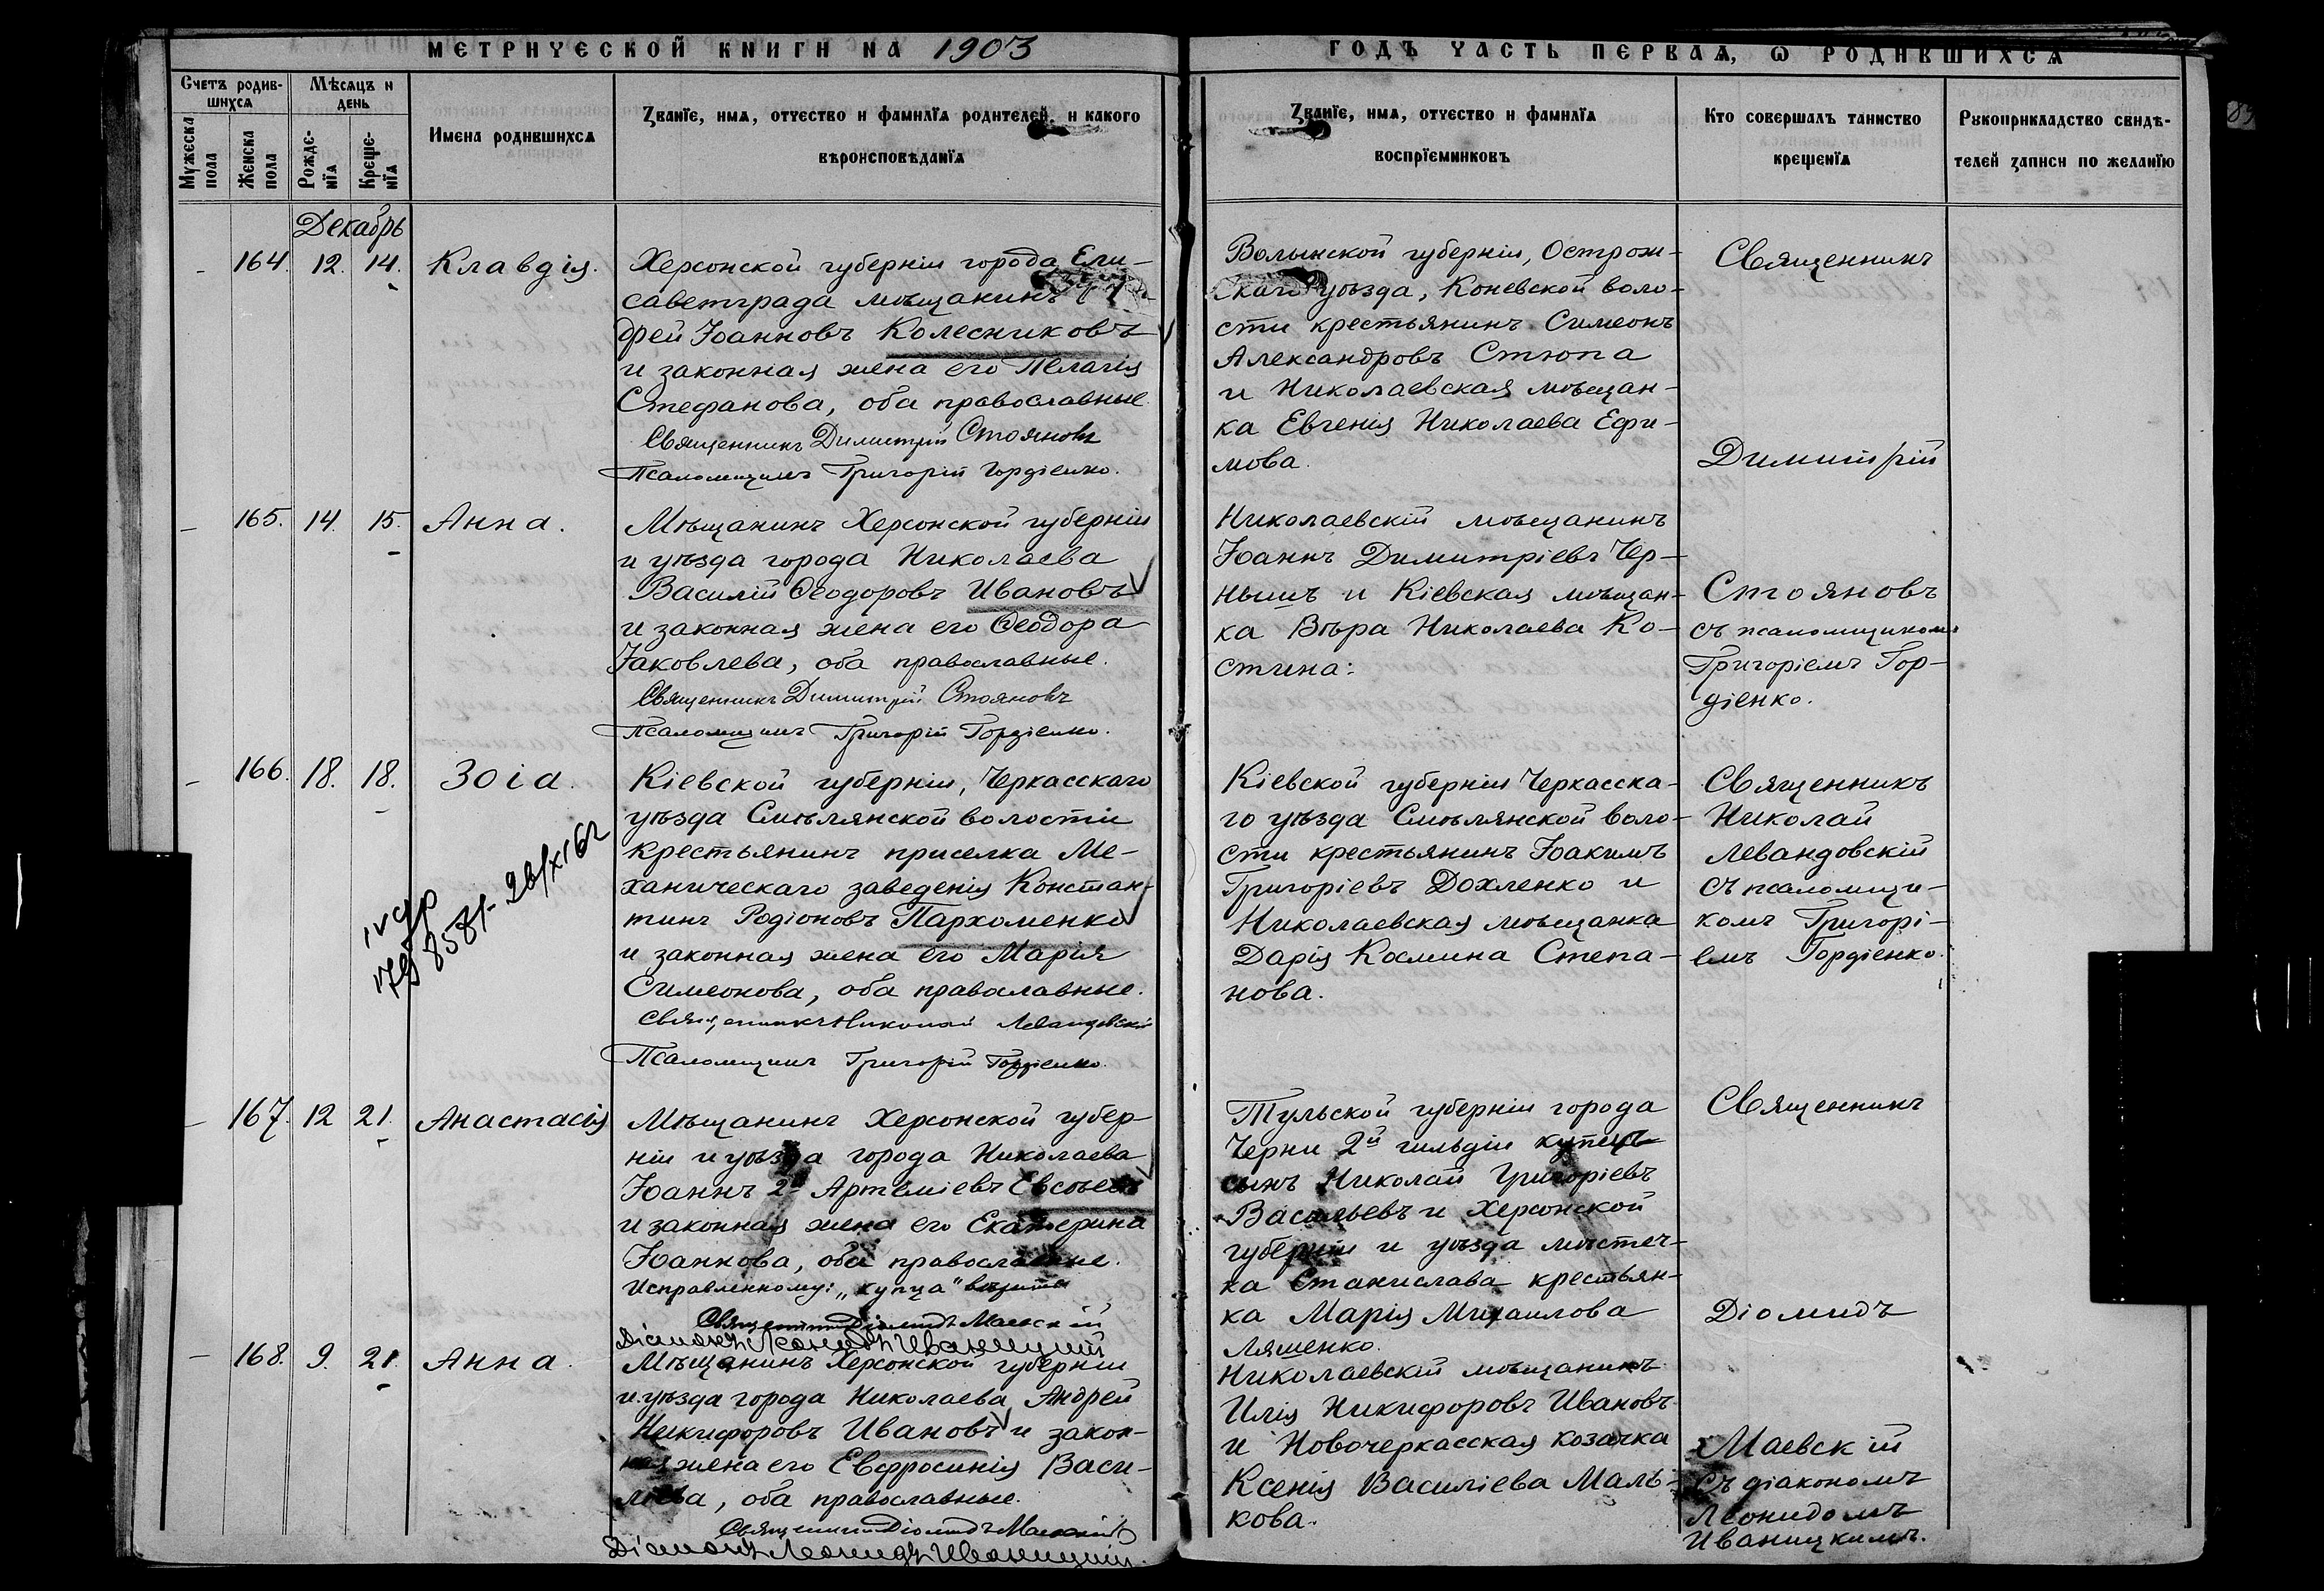 МЕТРИЧЕСКОЙ КНИГИ НА 1903
ГОДЪ ЧАСТЬ ПЕРВАЯ, Ѡ РОДИВШИХСЯ
Счетъ родив-
шихся
Мѣсяцъ и
день
Мужеска
пола
Женска
пола
Рожде-
нїя
Креще-
нїя
Имена родившихся
Званїе, имя, отчество и фамилїя родителей, и какого
вѣроисповѣданїя
Званїе, имя, отчество и фамилїя
воспрїемниковъ
Кто совершалъ таинство
крещенїя
Рукоприкладство свидѣ-
телей записи по желанїю
Декабрь
- 164. 12. 14. Клавдія.
Херсонской губерніи города Ели-
саветграда мѣщанинъ
дрей Іоанновъ Колесниковъ
и законная жена его Пелагія
Стефанова, оба православные.
Священникъ Димитрій Стояновъ
Псаломщикъ Григорій Гордіенко.
Волынской губерніи, Острож-
скаго уѣзда, Коневской воло-
сти крестьянинъ Симеонъ
Александровъ Стюпа
и Николаевская мѣщан-
ка Евгенія Николаева Ефи-
мова.
Священникъ
Димитрій
- 165. 14. 15. Анна.
Мѣщанинъ Херсонской губерніи
и уѣзда города Николаева
Василій Ѳеодоровъ Ивановъ
и законная жена его Ѳеодора
Іаковлева, оба православные.
Священникъ Димитрій Стояновъ
Псаломщикъ Григорій Гордіенко.
Николаевскій мѣщанинъ
Іоаннъ Димитріевъ Чер-
нышъ и Кіевская мѣщан-
ка Вѣра Николаева Ко-
стина:
Стояновъ
съ псаломщикомъ
Григоріемъ Гор-
діенко.
- 166. 18. 18. Зоіа.
Кіевской губерніи, Черкасскаго
уѣзда Смѣлянской волости
крестьянинъ приселка Ме-
ханическаго заведенія Констан-
тинъ Родіоновъ Пархоменко
и законная жена его Марія
Симеонова, оба православные.
Священникъ Николай Левандовскій
Псаломщикъ Григорій Гордіенко.
Кіевской губерніи Черкасска-
го уѣзда Смѣлянской воло-
сти крестьянинъ Іоакимъ
Григоріевъ Дохленко и
Николаевская мѣщанка
Дарія Космина Степа-
нова.
Священникъ
Николай
Левандовскій
съ псаломщи-
комъ Григорі-
емъ Гордіенко.
- 167. 12 21. Анастасія
Мѣщанинъ Херсонской губер-
ніи и уѣзда города Николаева
Іоаннъ 2й Артеміевъ Евсѣевъ
и законная жена его Екатерина
Іоаннова, оба православные.
Исправленному: „купца" вѣрить
Священникъ Діомидъ Маевскій
Діаконъ Леонидъ Иваницкій
Тульской губерніи города
Черни 2й гильдіи купца
сынъ Николай Григоріевъ
Васильевъ и Херсонской
губерніи и уѣзда мѣстеч-
ка Станислава крестьян-
ка Марія Михаилова
Ляшенко.
Священникъ
Діомидъ
- 168. 9. 21. Анна.
Мѣщанинъ Херсонской губерніи
и уѣзда города Николаева Андрей
Никифоровъ Ивановъ и закон-
ная жена его Евфросинія Васи-
льева, оба православные.
Священникъ Діомидъ Маевскій
Діаконъ Леонидъ Иваницкій.
Николаевскій мѣщанинъ
Илія Никифоровъ Ивановъ
и Новочеркасская козачка
Ксенія Василіева Маль-
кова.
Маевскій
съ діакономъ
Леонидомъ
Иваницкимъ.